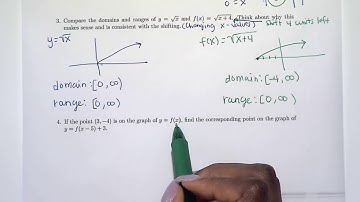 0 = x
3. Compare the domains and ranges of y = √x and f(x) = √x + 4. Think about why this
makes sense and is consistent with the shifting. (changing x-values) shift 4 units left
y=√x
f(x)=√x+4
domain:[0,∞)
domain:[-4,∞)
range: [0,∞)
range: [0,∞)
4. If the point (3,−4) is on the graph of y = f(x), find the corresponding point on the graph of
y = f(x − 5) + 3.